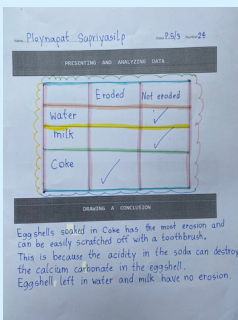 Name Ploynapat Supriyasilp Class P.5/3 Number 24
PRESENTING AND ANALYZING DATA
Eroded Not eroded
Water ✓
milk ✓
Coke ✓
DRAWING A CONCLUSION
Eggshells soaked in Coke has the most erosion and
can be easily scratched off with a toothbrush.
This is because the acidity in the soda can destroy
the calcium carbonate in the eggshell.
Eggshell left in water and milk have no erosion.